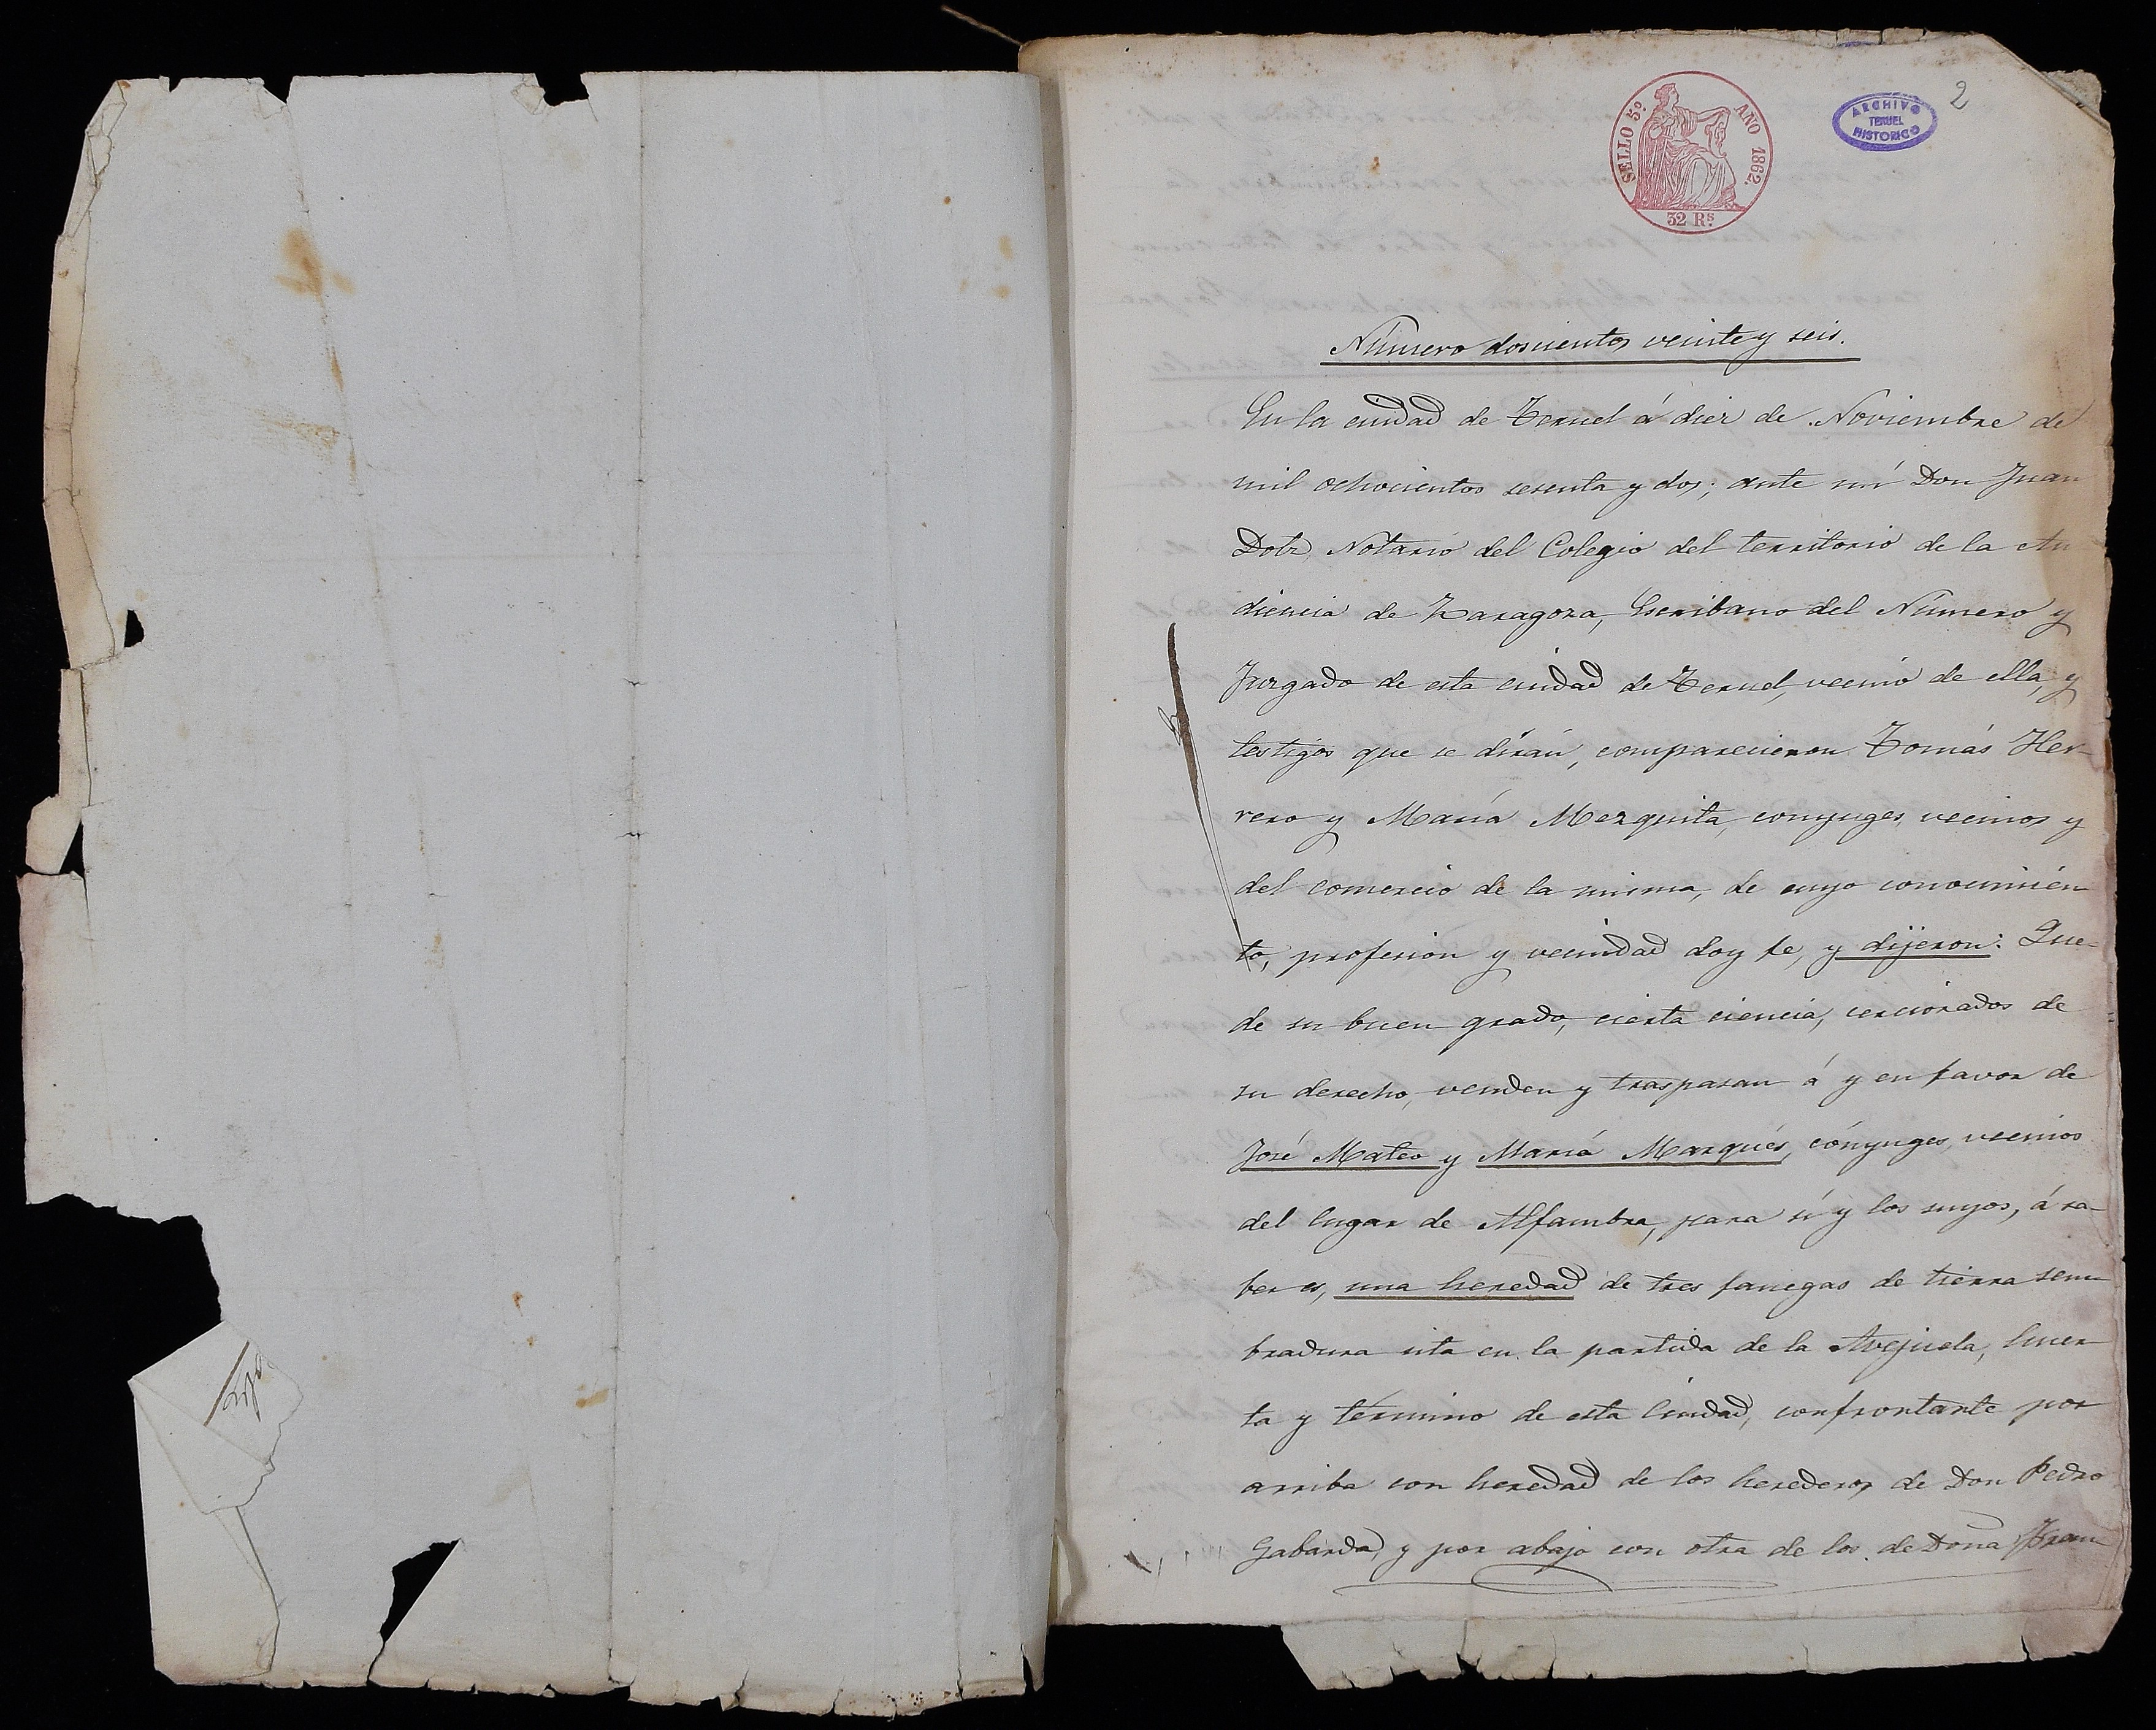 SELLO 5º AÑO 1862.
32 Rs
ARCHIVO
TERUEL
HISTORICO
2
Número doscientos veinte y seis.
En la ciudad de Teruel á diez de Noviembre de
mil ochocientos sesenta y dos; ante mí Don Juan
Dolz, Notario del Colegio del territorio de la Au
diencia de Zaragoza, Escribano del Número y
Juzgado de esta ciudad de Teruel, vecino de ella, y
testigos que se dirán, comparecieron Tomás Her-
rero y María Mezquita, conyuges, vecinos y
del comercio de la misma, de cuyo conocimien
to, profesion y vecindad doy fe, y dijeron: Que
de su buen grado, cierta ciencia, cerciorados de
su derecho, venden y traspasan á y en favor de
José Mateo y María Marqués, cónyuges, vecinos
del lugar de Alfambra, para sí y los suyos, á sa-
ber es, una heredad de tres fanegas de tierra sem
bradura sita en la partida de la Avejuela, huer
ta y término de esta Ciudad, confrontante por
arriba con heredad de los herederos de Don Pedro
Gabarda, y por abajo con otra de los de Doña Fran